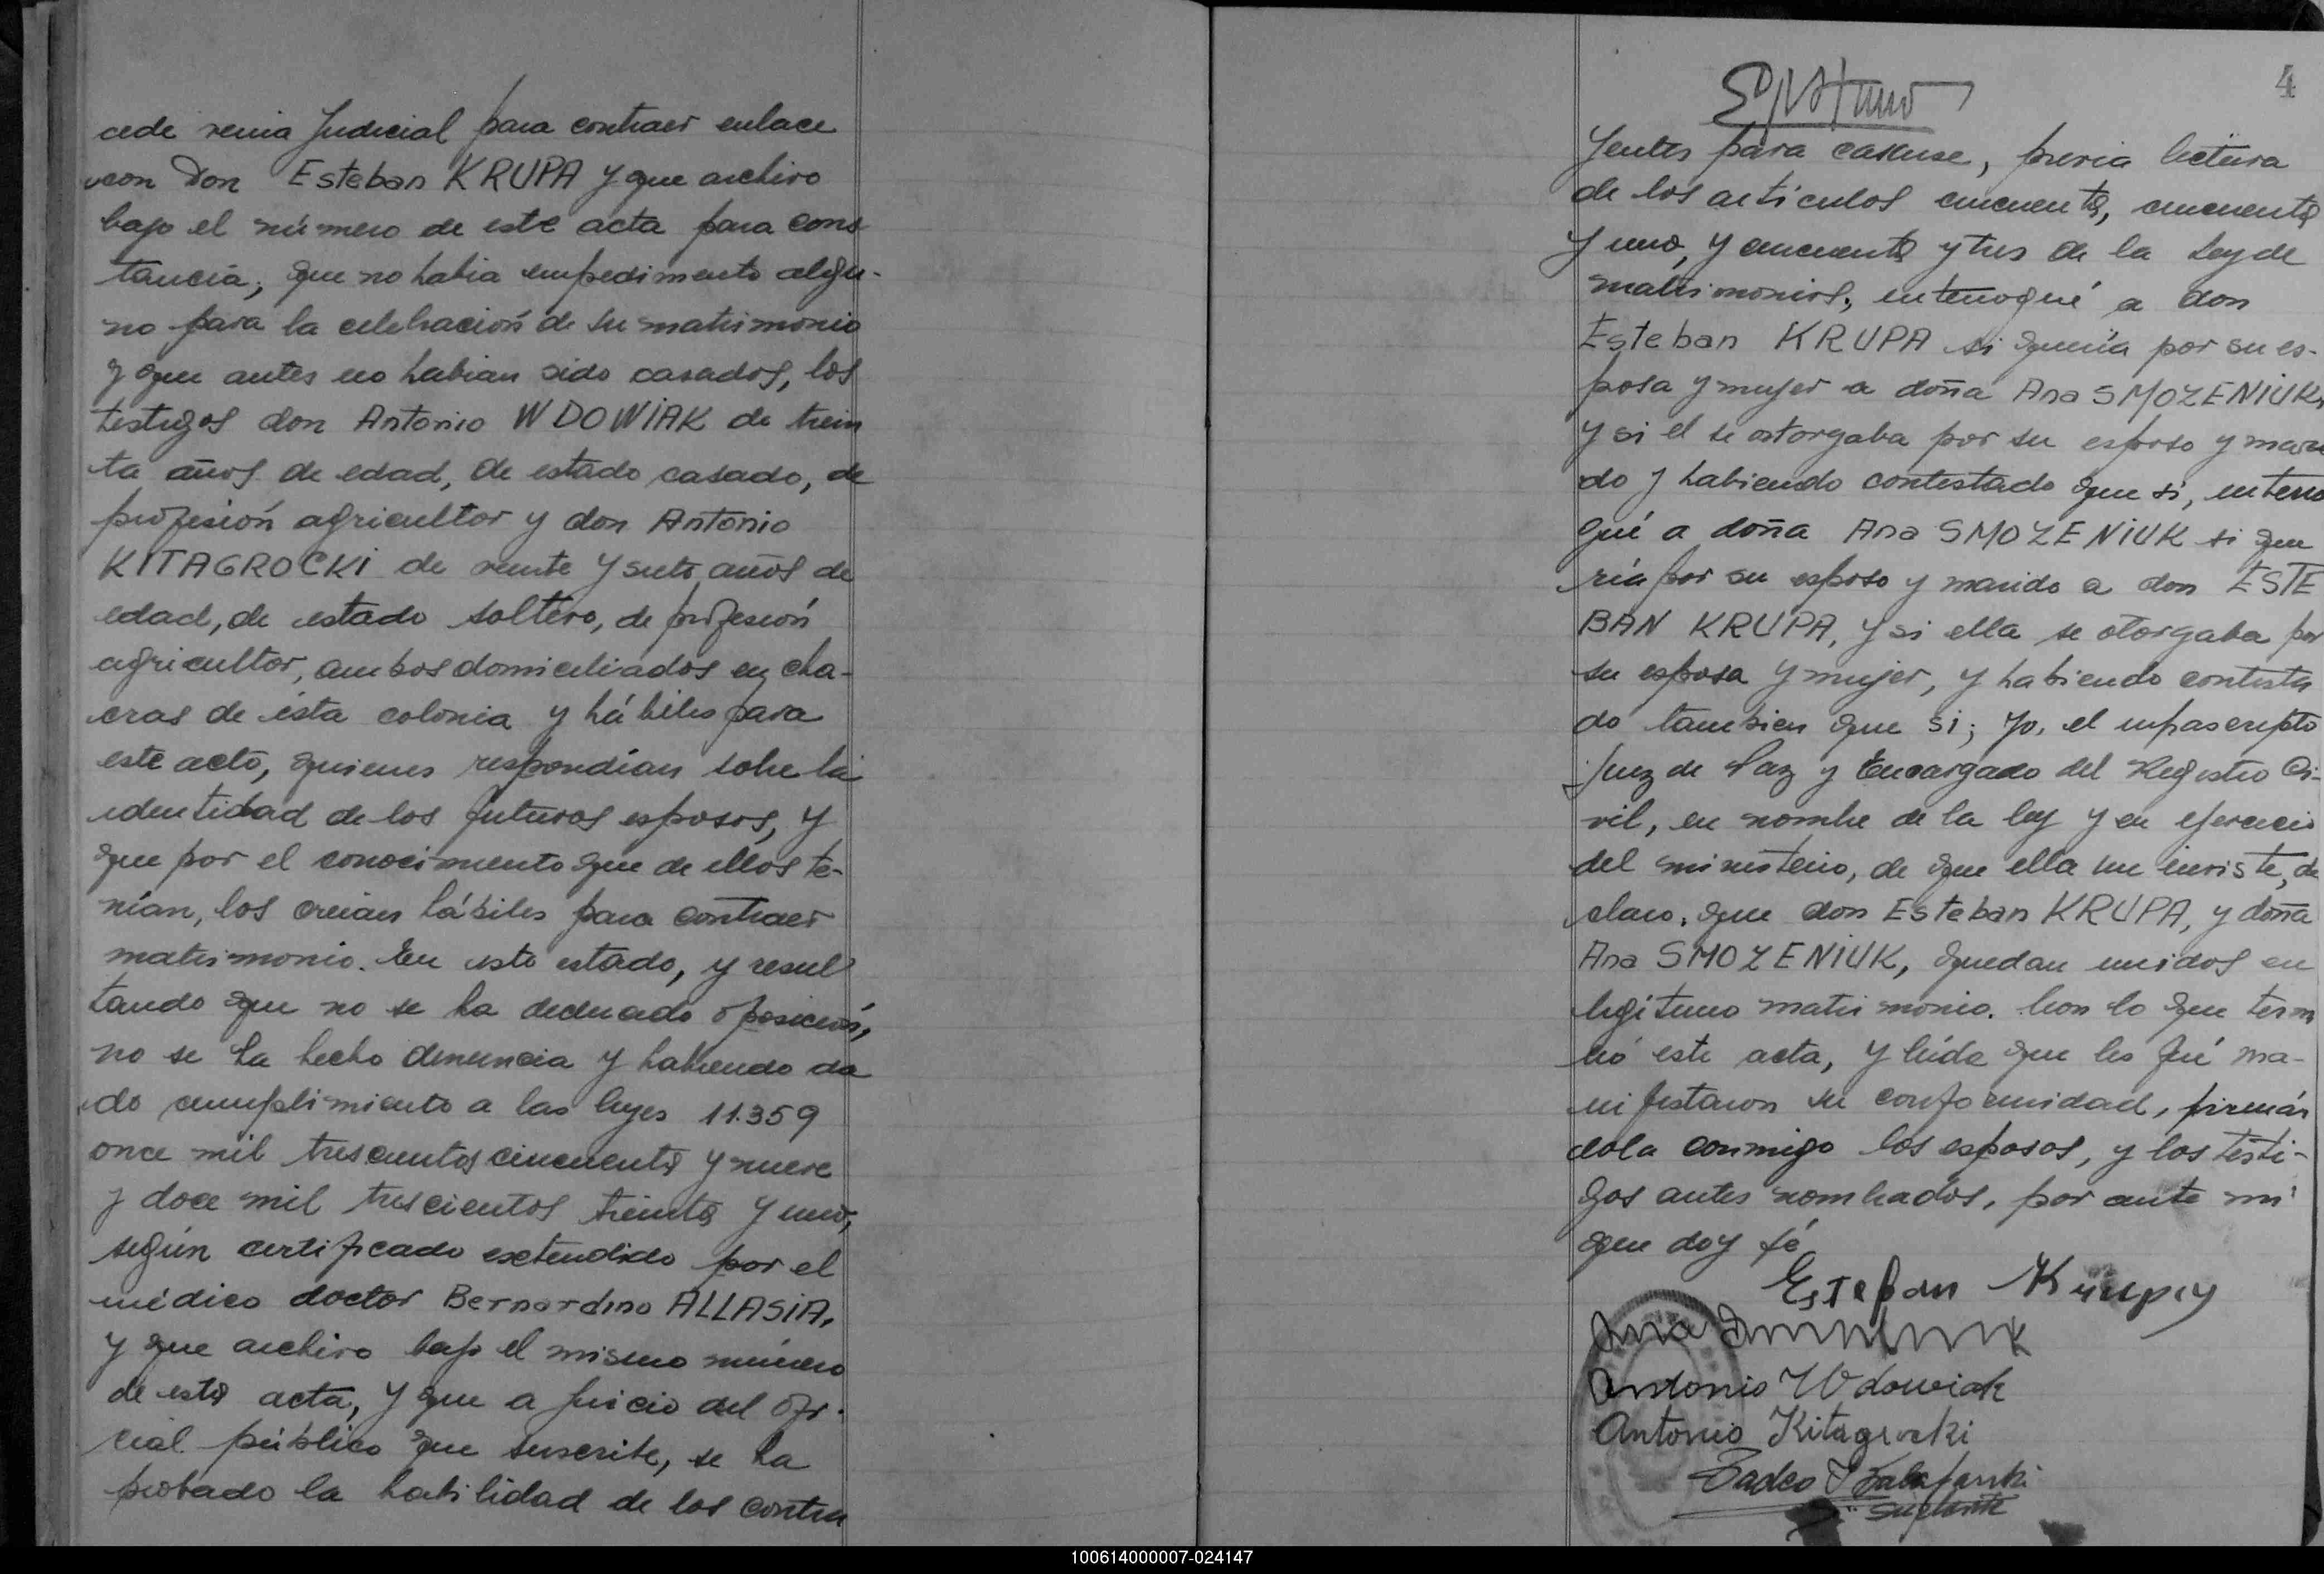 cede venia Judicial para contraer enlace
con Don Esteban KRUPA y que archivo
bajo el número de este acta para cons
tancia; que no habia impedimento algu-
no para la celebración de su matrimonio
y que antes no habian sido casados, los
testigos don Antonio WDOWIAK de trein
ta años de edad, de estado casado, de
profesión agricultor y don Antonio
KITAGROCKI de veinte y siete años de
edad, de estado soltero, de profesión
agricultor, ambos domiciliados en cha-
cras de ésta colonia y hábiles para
este acto, quienes respondian sobre la
identidad de los futuros esposos, y
que por el conocimiento que de ellos te-
nían, los creian hábiles para contraer
matrimonio. En este estado, y resul
tando que no se ha deducido oposición,
no se ha hecho denuncia y habiendo da
do cumplimiento a las leyes 11.359
once mil trescientos cincuenta y nueve
y doce mil trescientos treinta y uno,
según certificado extendido por el
médico doctor Bernardino ALLASIA,
y que archivo bajo el mismo número
de esta acta, y que a juicio del Ofi-
cial público que suscribe, se ha
probado la habilidad de los contra
4
yentes para casarse, previa lectura
de los artículos cincuenta, cincuenta
y uno, y cincuenta y tres de la Ley de
matrimonios; interrogué a don
Esteban KRUPA si quería por su es-
posa y mujer a doña Ana SMOZENIUK,
y si el se otorgaba por su esposo y mari
do y habiendo contestado que si, interro
gué a doña Ana SMOZENIUK si que
ría por su esposo y marido a don ESTE
BAN KRUPA, y si ella se otorgaba por
su esposa y mujer, y habiendo contesta
do tambien que si; Yo, el infrascripto
Juez de Paz y Encargado del Registro Ci-
vil, en nombre de la ley y en ejercicio
del ministerio, de que ella me inviste, de
claro, que don Esteban KRUPA, y doña
Ana SMOZENIUK, quedan unidos en
legítimo matrimonio. Con lo que termi
nó este acta, y leída que les fué ma-
nifestaron su conformidad, firmán
dola conmigo los esposos, y los testi-
gos antes nombrados, por ante mi
que doy fé
Estefan
Ana
Antonio Wdowiak
Antonio Kitagrocki
Tadeo
Suplente
100614000007-024147